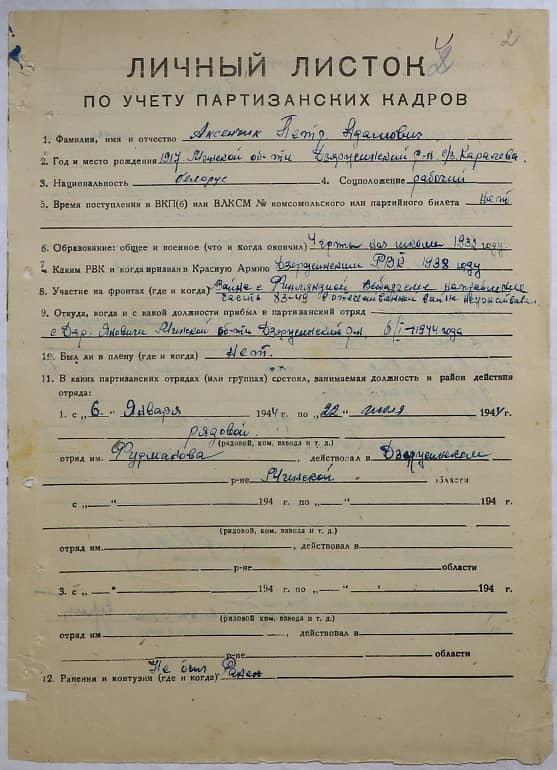 2
ЛИЧНЫЙ ЛИСТОК
ПО УЧЕТУ ПАРТИЗАНСКИХ КАДРОВ
1. Фамилия, имя и отчество Аксенчик Петр Адамович
2. Год и место рождения 1917 Минской об-ти Дзержинский р-н с/з. Каралева
3. Национальность белорус 4. Соцположение рабочий
5. Время поступления в ВКП(б) или ВЛКСМ № комсомольского или партийного билета Нет
6. Образование: общее и военное (что и когда окончил) школы 1932 году.
7. Каким РВК и когда призван в Красную Армию Дзержинским РВК 1938 году
8. Участие на фронтах (где и когда) Война с Финляндией направление
часть 83-49 В отечественной войне не участвовал.
9. Откуда, когда и с какой должности прибыл в партизанский отряд
с Дер. Яновичи Минской об-ти Дзержинский р-н. 6/I-1944 года
10. Был ли в плену (где и когда) Нет.
11. В каких партизанских отрядах (или группах) состоял, занимаемая должность и район действия
отряда:
1. с „6“ Января 1944 г. по „22“ июля 1944 г.
рядовой
(рядовой, ком. взвода и т. д.)
отряд им. Фурманова, действовал в Дзержинском
р-не Минской области
с „ — “ 194 г. по „ — “ 194 г.
(рядовой, ком. взвода и т. д.)
отряд им. , действовал в
р-не области
3. с „ — “ 194 г. по „ — “ 194 г.
(рядовой ком. взвода и т. д.)
отряд им , действовал в
р-не области
12. Ранения и контузии (где и когда) Не был Ранен